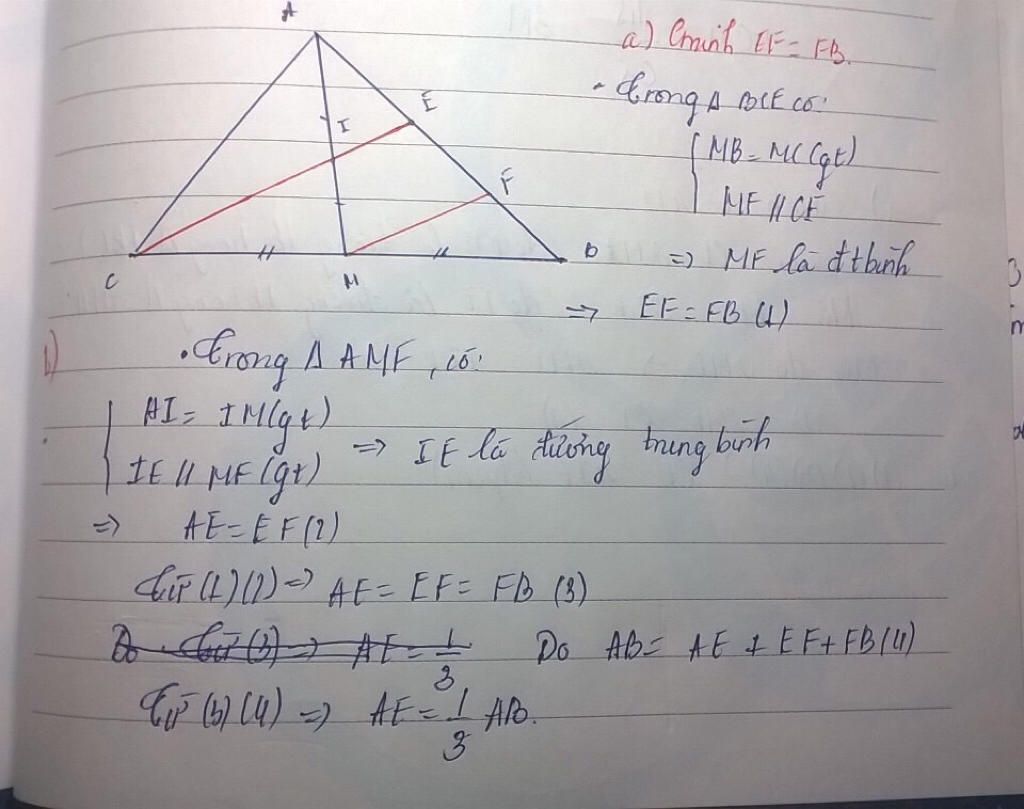 A
a) Cminh EF = FB.
• Trong Δ BCE có:
E
I
MB = MC (gt)
F
MF // CE
C
M
B
=> MF là đtbình
=> EF = FB (1)
b)
• Trong Δ AMF, có:
AI = IM (gt)
IE // MF (gt) => IE là đường trung bình
=> AE = EF (2)
Từ (1) (2) => AE = EF = FB (3)
Do Từ (3) => AE = 1/3 Do AB = AE + EF + FB (4)
Từ (3) (4) => AE = 1/3 AB.